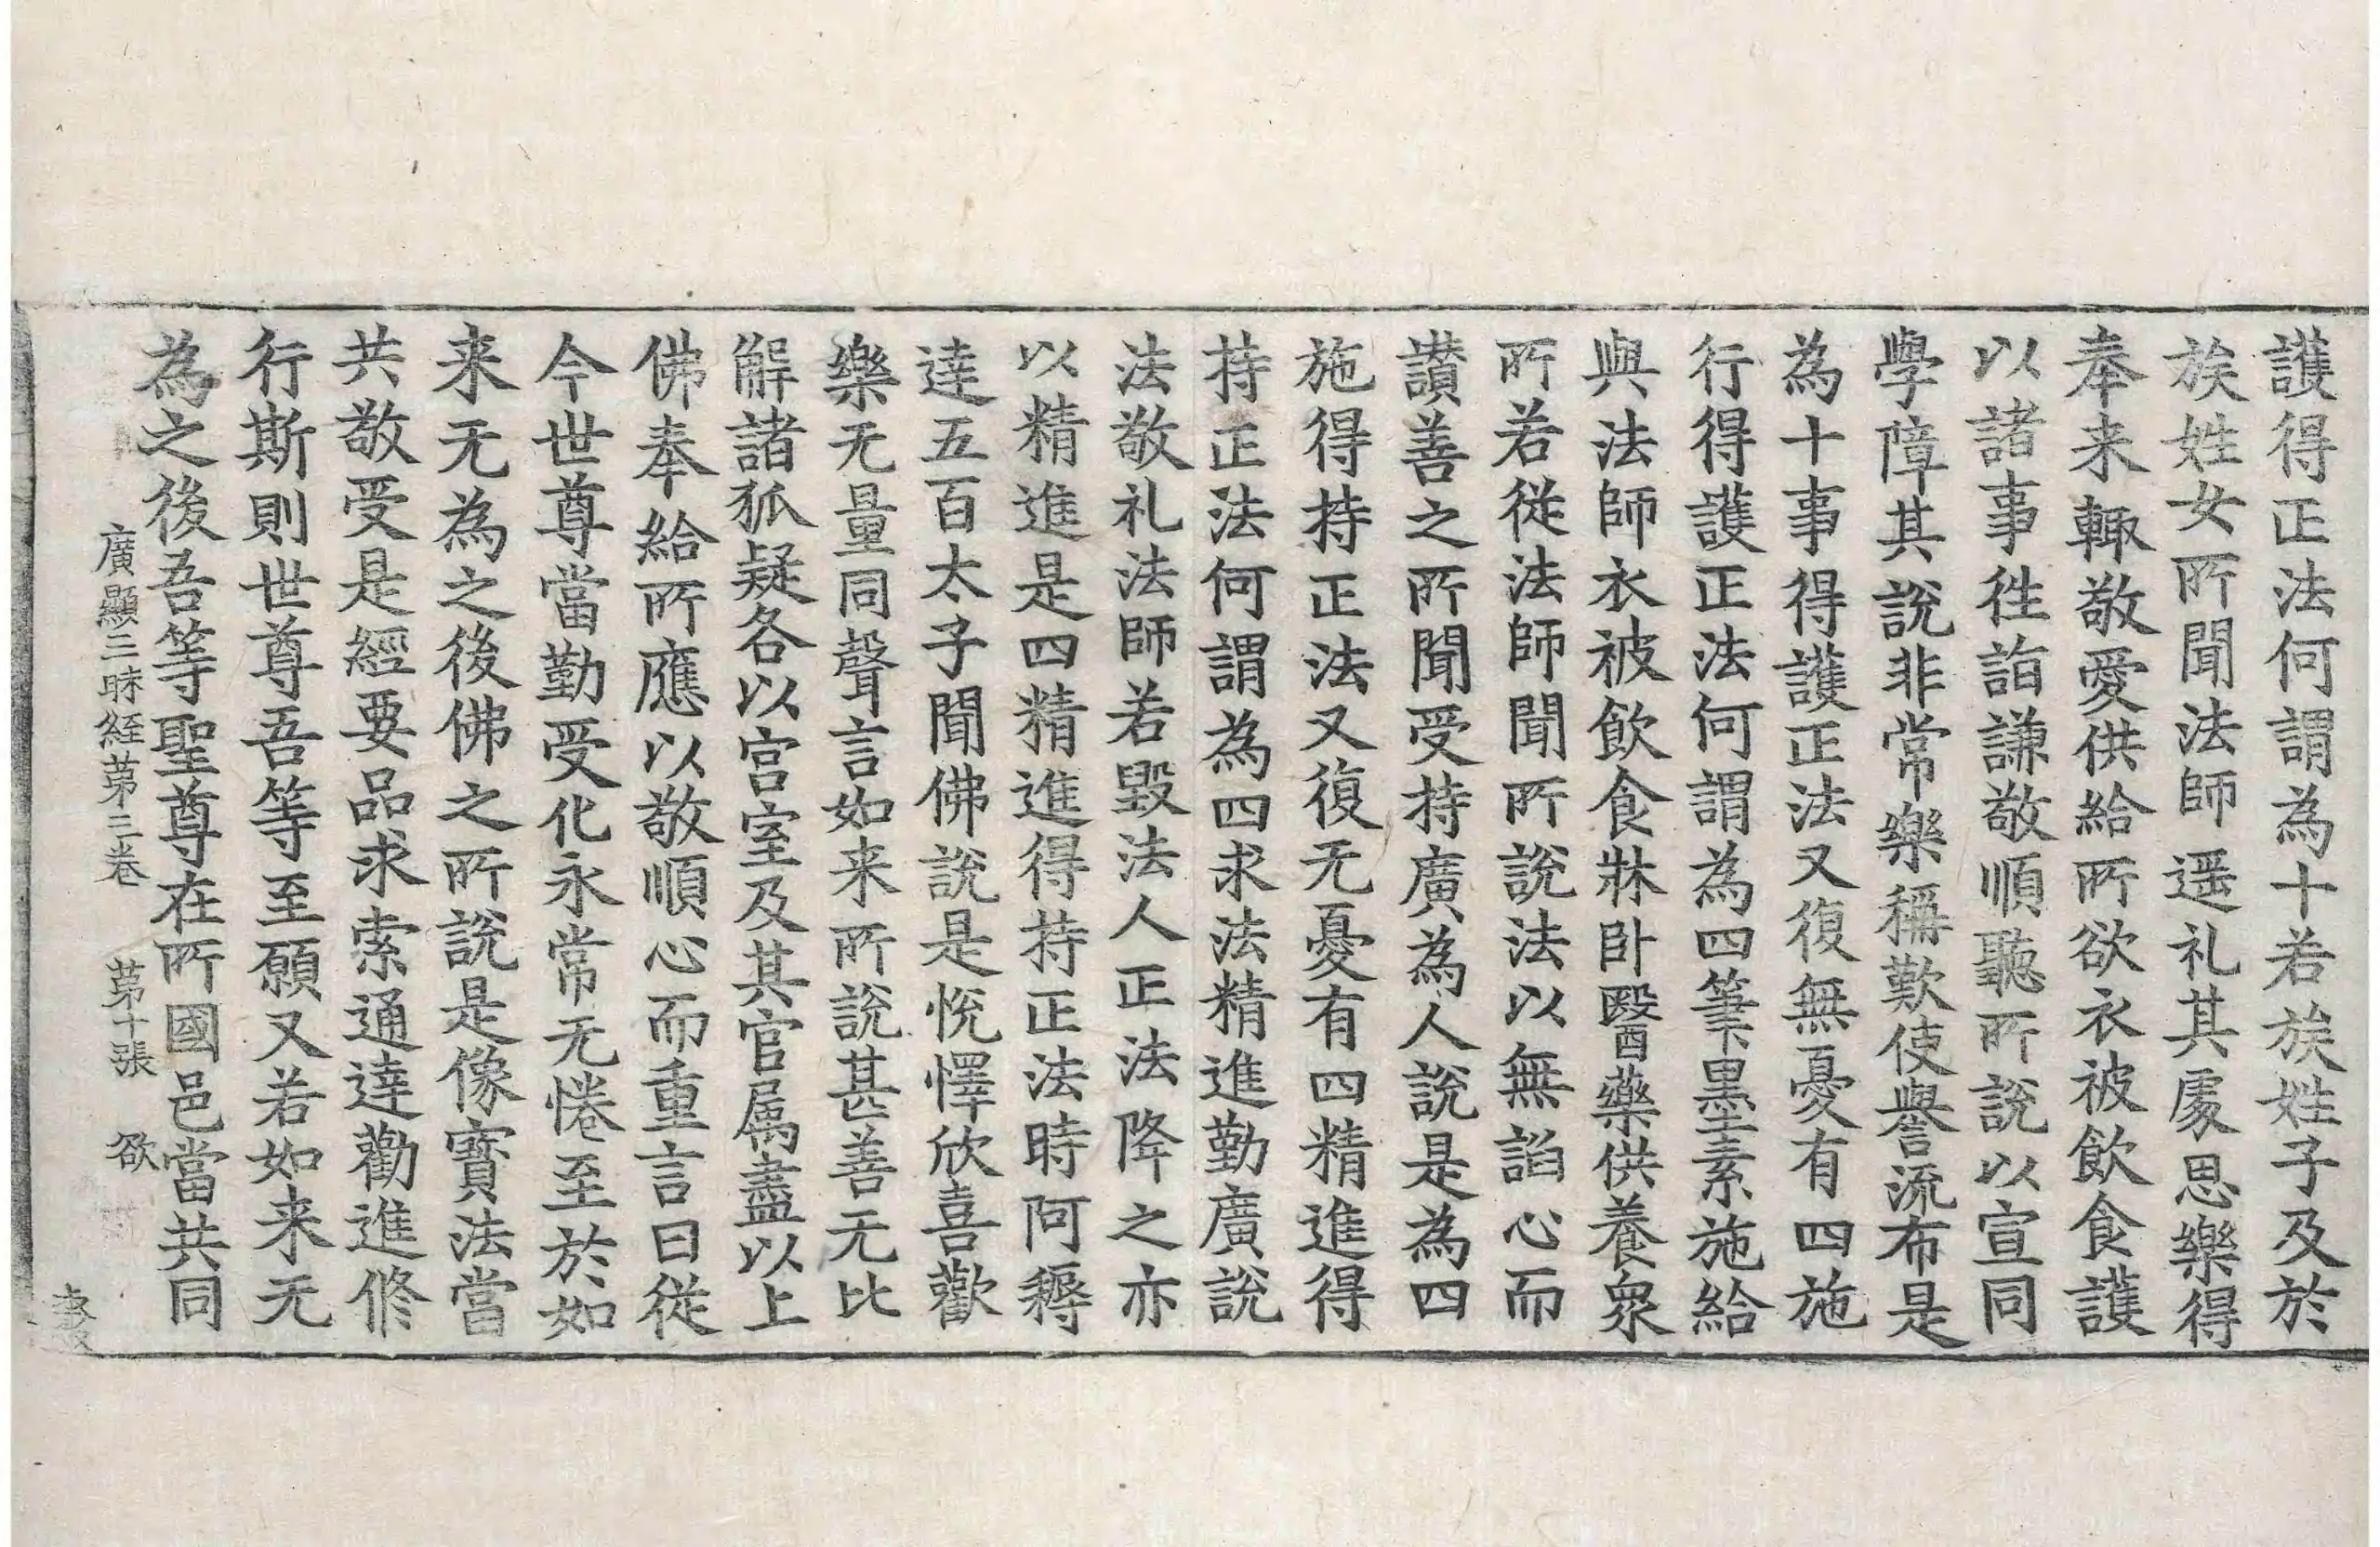 護得正法何謂為十若族姓子及於
族姓女所聞法師遥礼其處思樂得
奉来輙敬愛供給所欲衣被飲食護
以諸事徃詣謙敬順聽所說以宣同
學障其說非常樂稱歎使譽流布是
為十事得護正法又復無憂有四施
行得護正法何謂為四筆墨素施給
與法師衣被飲食牀卧醫藥供養衆
所若從法師聞所說法以無諂心而
讃善之所聞受持廣為人說是為四
施得持正法又復无憂有四精進得
持正法何謂為四求法精進勤廣說
法敬礼法師若毀法人正法降之亦
以精進是四精進得持正法時阿耨
達五百太子聞佛說是悅懌欣喜歡
樂无量同聲言如来所說甚善无比
解諸狐疑各以宫室及其官属盡以上
佛奉給所應以敬順心而重言曰從
今世尊當勤受化永常无惓至於如
来无為之後佛之所說是像寳法當
共敬受是經要品求索通達勸進修
行斯則世尊吾等至願又若如来无
為之後吾等聖尊在所國邑當共同
廣顯三昧經第三卷 第十張 欲